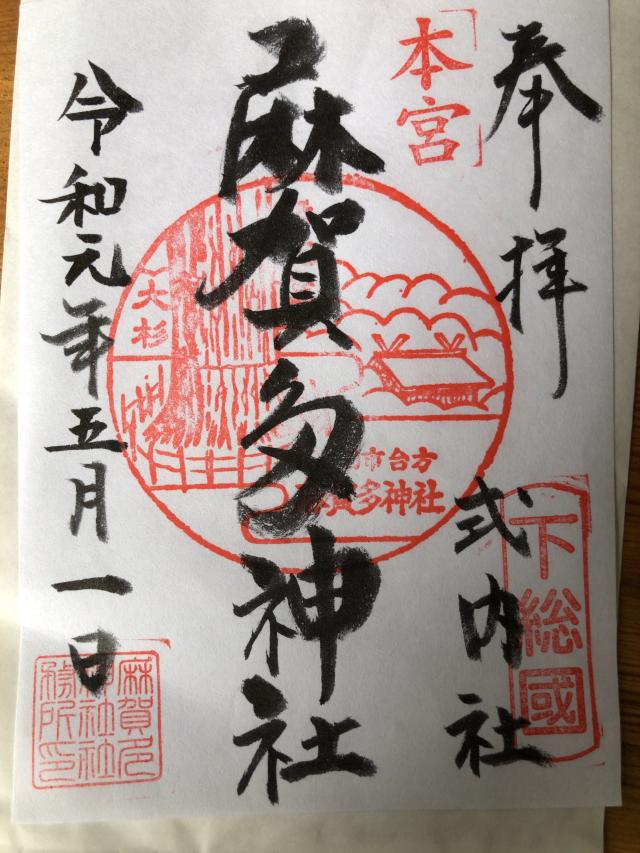 奉拝
本宮
式内社
下総國
麻賀多神社
大杉
市台方
賀多神社
令和元年五月一日
麻賀多
神社社
務所印